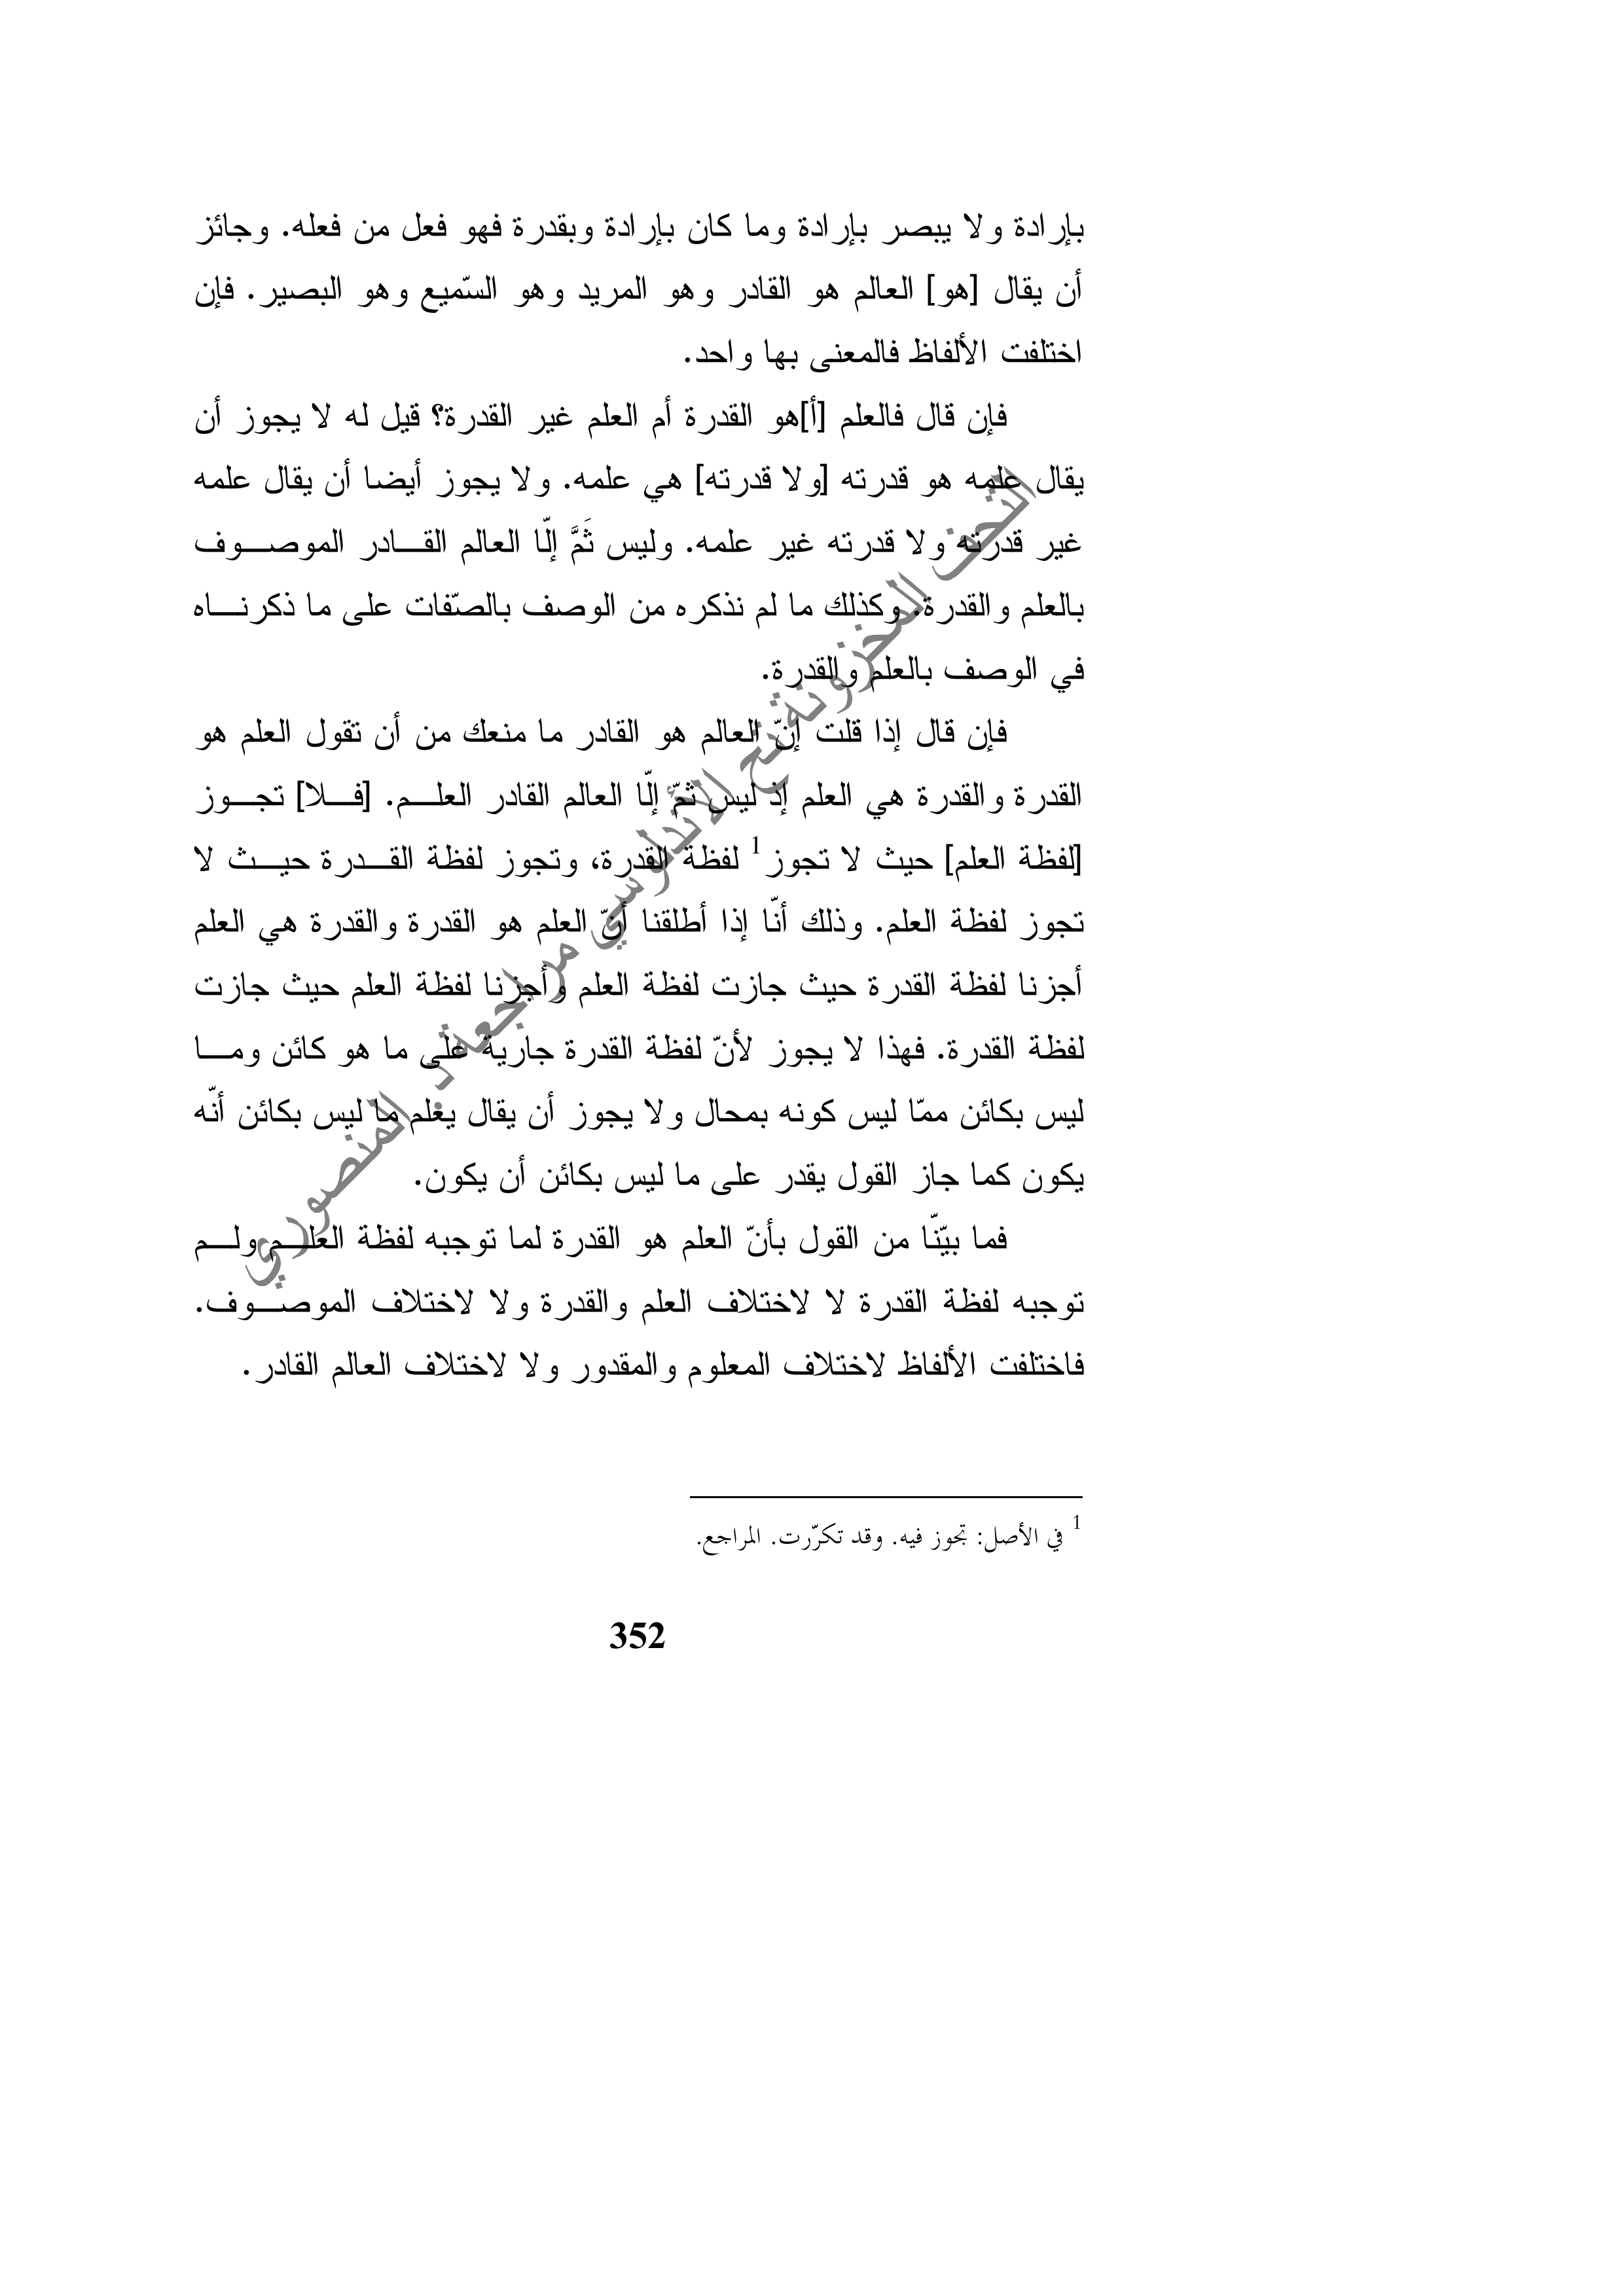 بإرادة ولا يبصر بإرادة وما كان بإرادة وبقدرة فهو فعل من فعله. وجائز
أن يقال [هو] العالم هو القادر وهو المريد وهو السّميع وهو البصير. فإن
اختلفت الألفاظ فالمعنى بها واحد.
فإن قال فالعلم [أ]هو القدرة أم العلم غير القدرة؟ قيل له لا يجوز أن
يقال علمه هو قدرته [ولا قدرته] هي علمه. ولا يجوز أيضا أن يقال علمه
غير قدرته ولا قدرته غير علمه. وليس ثَمَّ إلّا العالم القـــادر الموصـــوف
بالعلم والقدرة. وكذلك ما لم نذكره من الوصف بالصّفات على ما ذكرنـــاه
في الوصف بالعلم والقدرة.
فإن قال إذا قلت إنّ العالم هو القادر ما منعك من أن تقول العلم هو
القدرة والقدرة هي العلم إذ ليس ثمّ إلّا العالم القادر العلـــم. [فـــلا] تجـــوز
[لفظة العلم] حيث لا تجوز1 لفظة القدرة، وتجوز لفظة القـــدرة حيـــث لا
تجوز لفظة العلم. وذلك أنّا إذا أطلقنا أنّ العلم هو القدرة والقدرة هي العلم
أجزنا لفظة القدرة حيث جازت لفظة العلم وأجزنا لفظة العلم حيث جازت
لفظة القدرة. فهذا لا يجوز لأنّ لفظة القدرة جارية على ما هو كائن ومـــا
ليس بكائن ممّا ليس كونه بمحال ولا يجوز أن يقال يعلم ما ليس بكائن أنّه
يكون كما جاز القول يقدر على ما ليس بكائن أن يكون.
فما بيّنّا من القول بأنّ العلم هو القدرة لما توجبه لفظة العلـــم ولـــم
توجبه لفظة القدرة لا لاختلاف العلم والقدرة ولا لاختلاف الموصـــوف.
فاختلفت الألفاظ لاختلاف المعلوم والمقدور ولا لاختلاف العالم القادر.
التحف المخزونة تح الأندلوسي مراجعة د. المنصوري
1 في الأصل: تجوز فيه. وقد تكرّرت. المراجع.
352